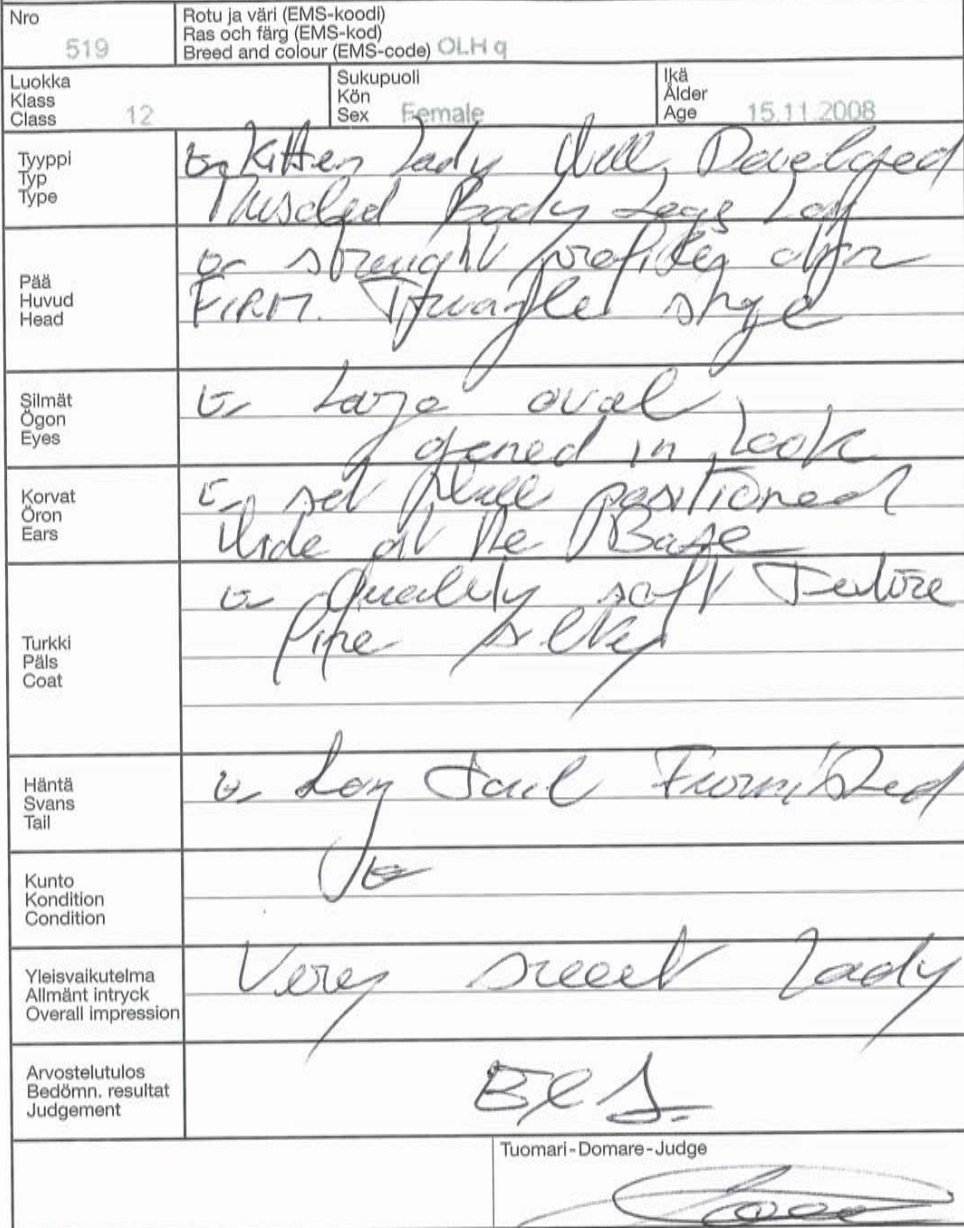 Nro
519
Rotu ja väri (EMS-koodi)
Ras och färg (EMS-kod)
Breed and colour (EMS-code) OLH q
Luokka
Klass
Class 12
Sukupuoli
Kön
Sex Female
Ikä
Ålder
Age 15.11.2008
Tyyppi
Typ
Type
Kitten Lady Well Developed
Muscled Body Legs
Pää
Huvud
Head
straight profile chin
FIRM. Triangle shape
Silmät
Ögon
Eyes
Large oval
opened in Look
Korvat
Öron
Ears
set Well positioned
Wide at the Base
Turkki
Päls
Coat
Quality soft Texture
Fine silky
Häntä
Svans
Tail
Long Tail Furnished
Kunto
Kondition
Condition
Yleisvaikutelma
Allmänt intryck
Overall impression
Very sweet Lady
Arvostelutulos
Bedömn. resultat
Judgement
Ex 1.
Tuomari-Domare-Judge